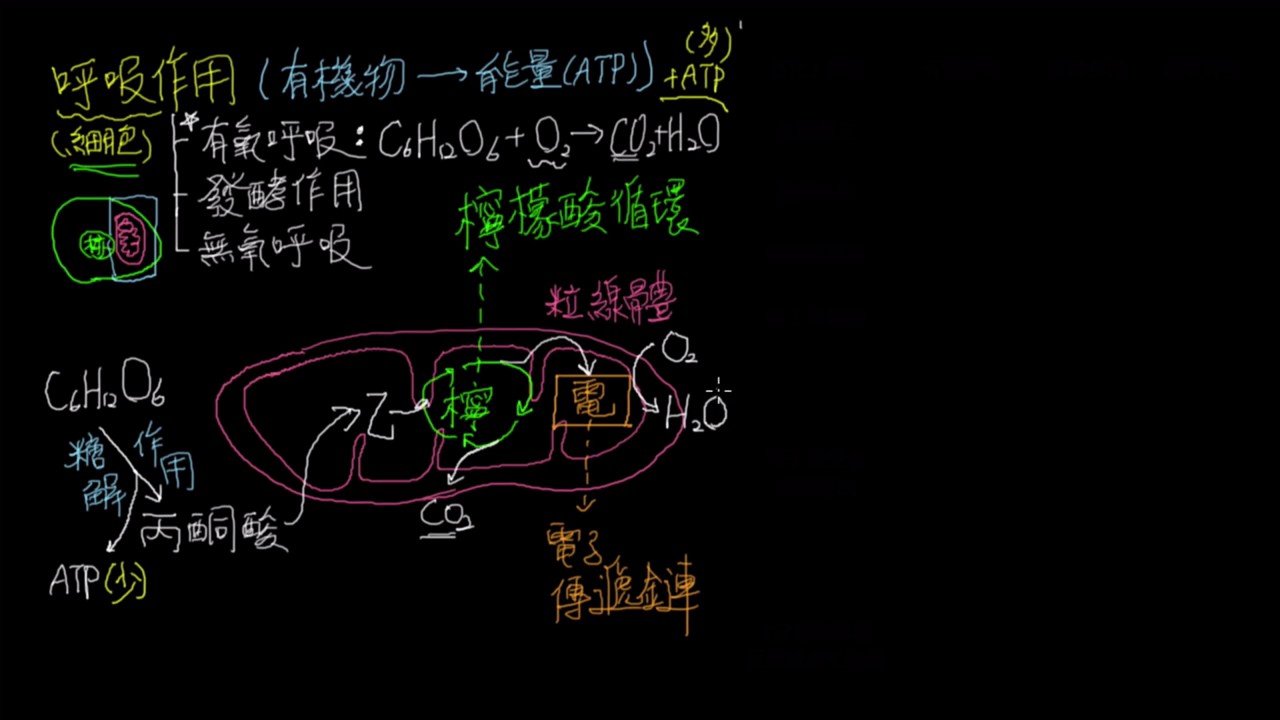 呼吸作用(有機物→能量(ATP))
(多)
+ATP
(細胞)
*有氧呼吸:C₆H₁₂O₆+O₂→CO₂+H₂O
發酵作用
無氧呼吸
核
檸檬酸循環
粒線體
C₆H₁₂O₆
糖解
作用
丙酮酸
ATP(少)
乙
檸
電
O₂
H₂O
CO₂
電子
傳遞鏈